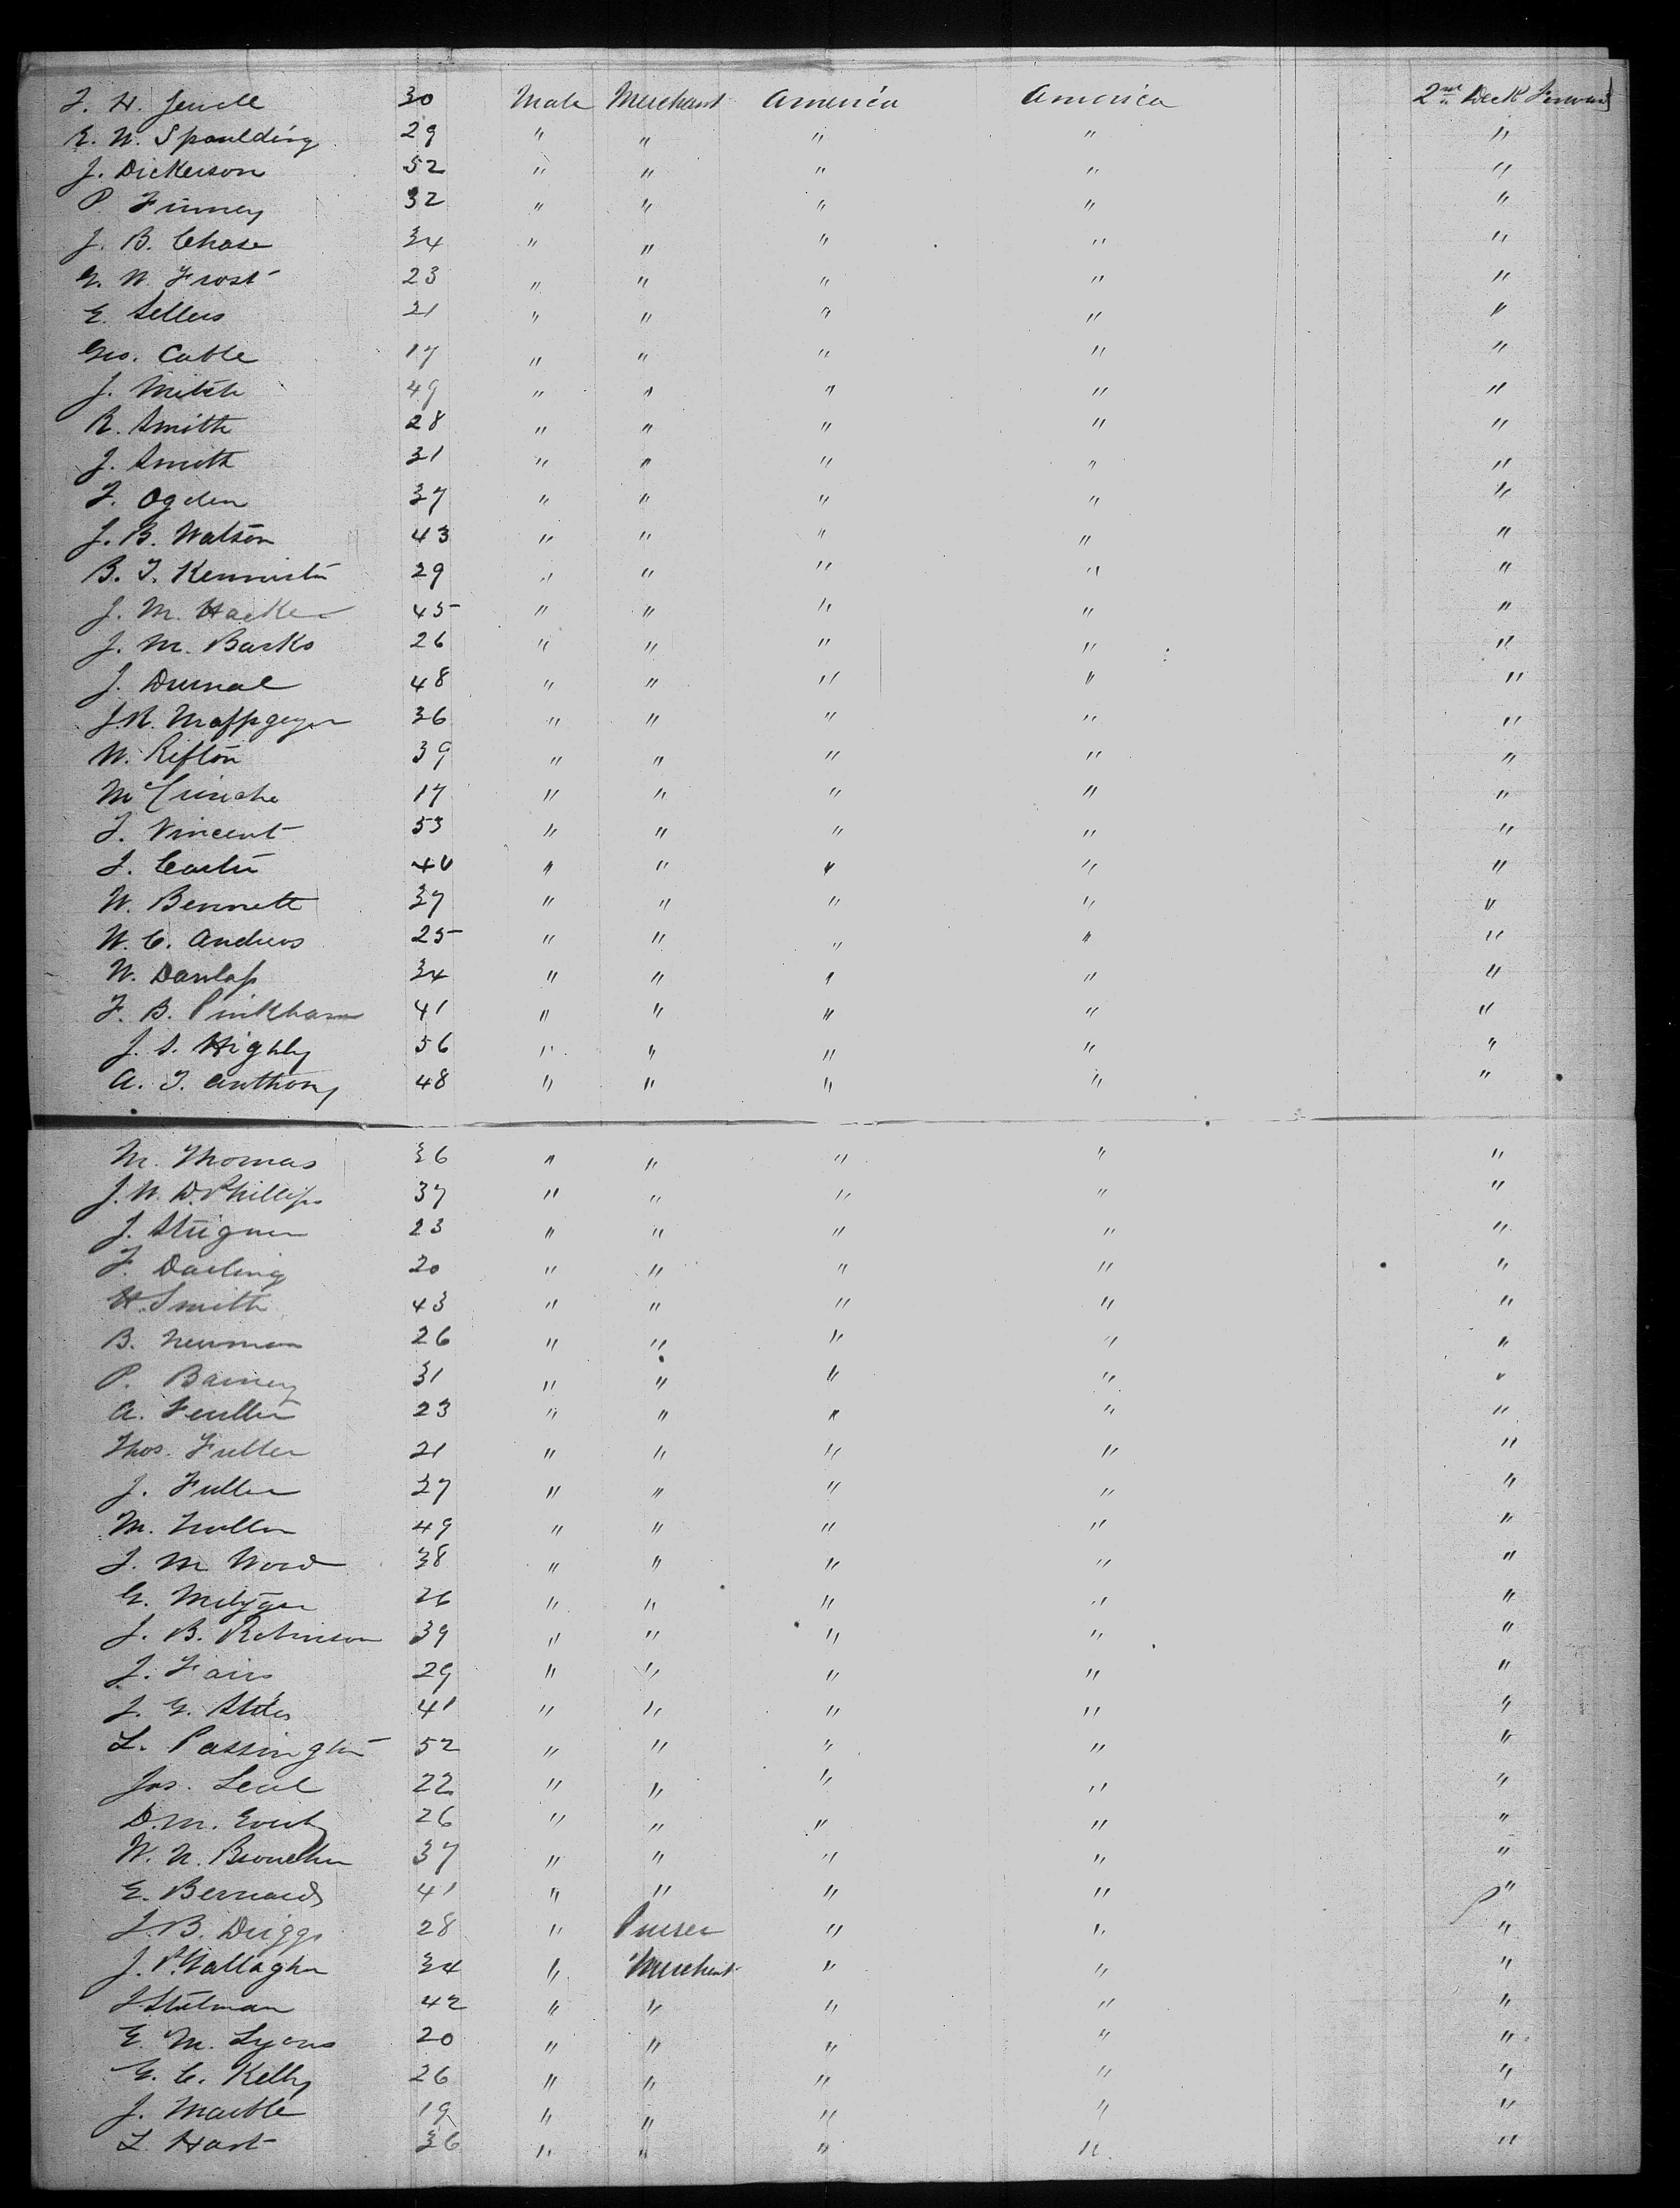 J. H. Jewell 30 Male Merchant America America 2nd Deck Forward
E. N. Spaulding 29 " " " " "
J. Dickerson 52 " " " " "
P. Finney 32 " " " " "
J. B. Chase 34 " " " " "
G. W. Frost 23 " " " " "
E. Sellers 21 " " " " "
Geo. Cable 17 " " " " "
J. 49 " " " " "
R. Smith 28 " " " " "
J. Smith 31 " " " " "
F. Ogden 37 " " " " "
J. B. Watson 43 " " " " "
B. F. Kenniston 29 " " " " "
J. M. Hacker 45 " " " " "
J. M. Barks 26 " " " " "
J. 48 " " " " "
36 " " " " "
W. Rifton 39 " " " " "
17 " " " " "
J. Vincent 53 " " " " "
J. Carter 40 " " " " "
W. Bennett 37 " " " " "
W. C. Andrews 25 " " " " "
W. Danlap 34 " " " " "
F. B. Pinkham 41 " " " " "
J. S. Highly 56 " " " " "
A. J. Anthony 48 " " " " "
M. Thomas 36 " " " " "
J. W. D. Phillips 37 " " " " "
J. 23 " " " " "
F. Darling 20 " " " " "
H. Smith 43 " " " " "
B. Newman 26 " " " " "
P. Barney 31 " " " " "
A. 23 " " " " "
Thos. Fuller 21 " " " " "
J. Fuller 27 " " " " "
M. 49 " " " " "
J. M. Wood 38 " " " " "
G. Metzger 26 " " " " "
J. B. Robinson 39 " " " " "
J. Fairs 29 " " " " "
J. G. Stiles 41 " " " " "
L. Passington 52 " " " " "
Jos. Leal 22 " " " " "
D. M. 26 " " " " "
W. N. 37 " " " " "
E. Bernards 41 " " " " "
J. B. Driggs 28 " Purser " " "
J. P. Gallagher 34 " Merchant " " "
J. Stutman 42 " " " " "
E. M. Lyons 20 " " " " "
G. C. Kelly 26 " " " " "
J. Marble 19 " " " " "
L. Hart 36 " " " " "